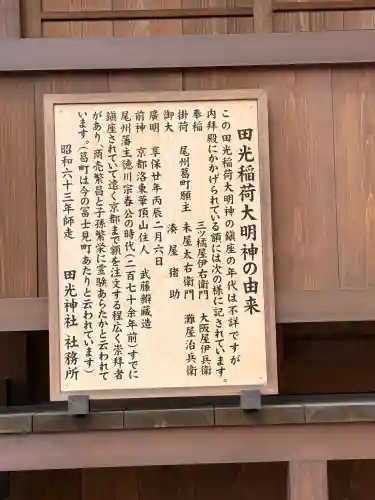 田光稲荷大明神の由来
この田光稲荷大明神の鎮座の年代は不詳ですが
内拝殿にかかげられている額には次の様に記されています。
奉稲　三ツ橘屋伊右衛門　大阪屋伊兵衛
掛荷　尾州葛町願主　未屋太右衛門　灘屋治兵衛
御大　湊屋猪助
廣明　享保廿年丙辰二月六日
前神　京都洛東筆頂山住人　武藤辨蔵造
尾州藩主徳川宗春公の時代(二百七十余年前)すでに
鎮座されていて遠く京都まで額を注文する程広く崇拝者
があり、商売繁昌と子孫繁栄に霊験あらたかと云われて
います。(葛町は今の冨士見町あたりと云われています)
昭和六十三年師走　田光神社　社務所